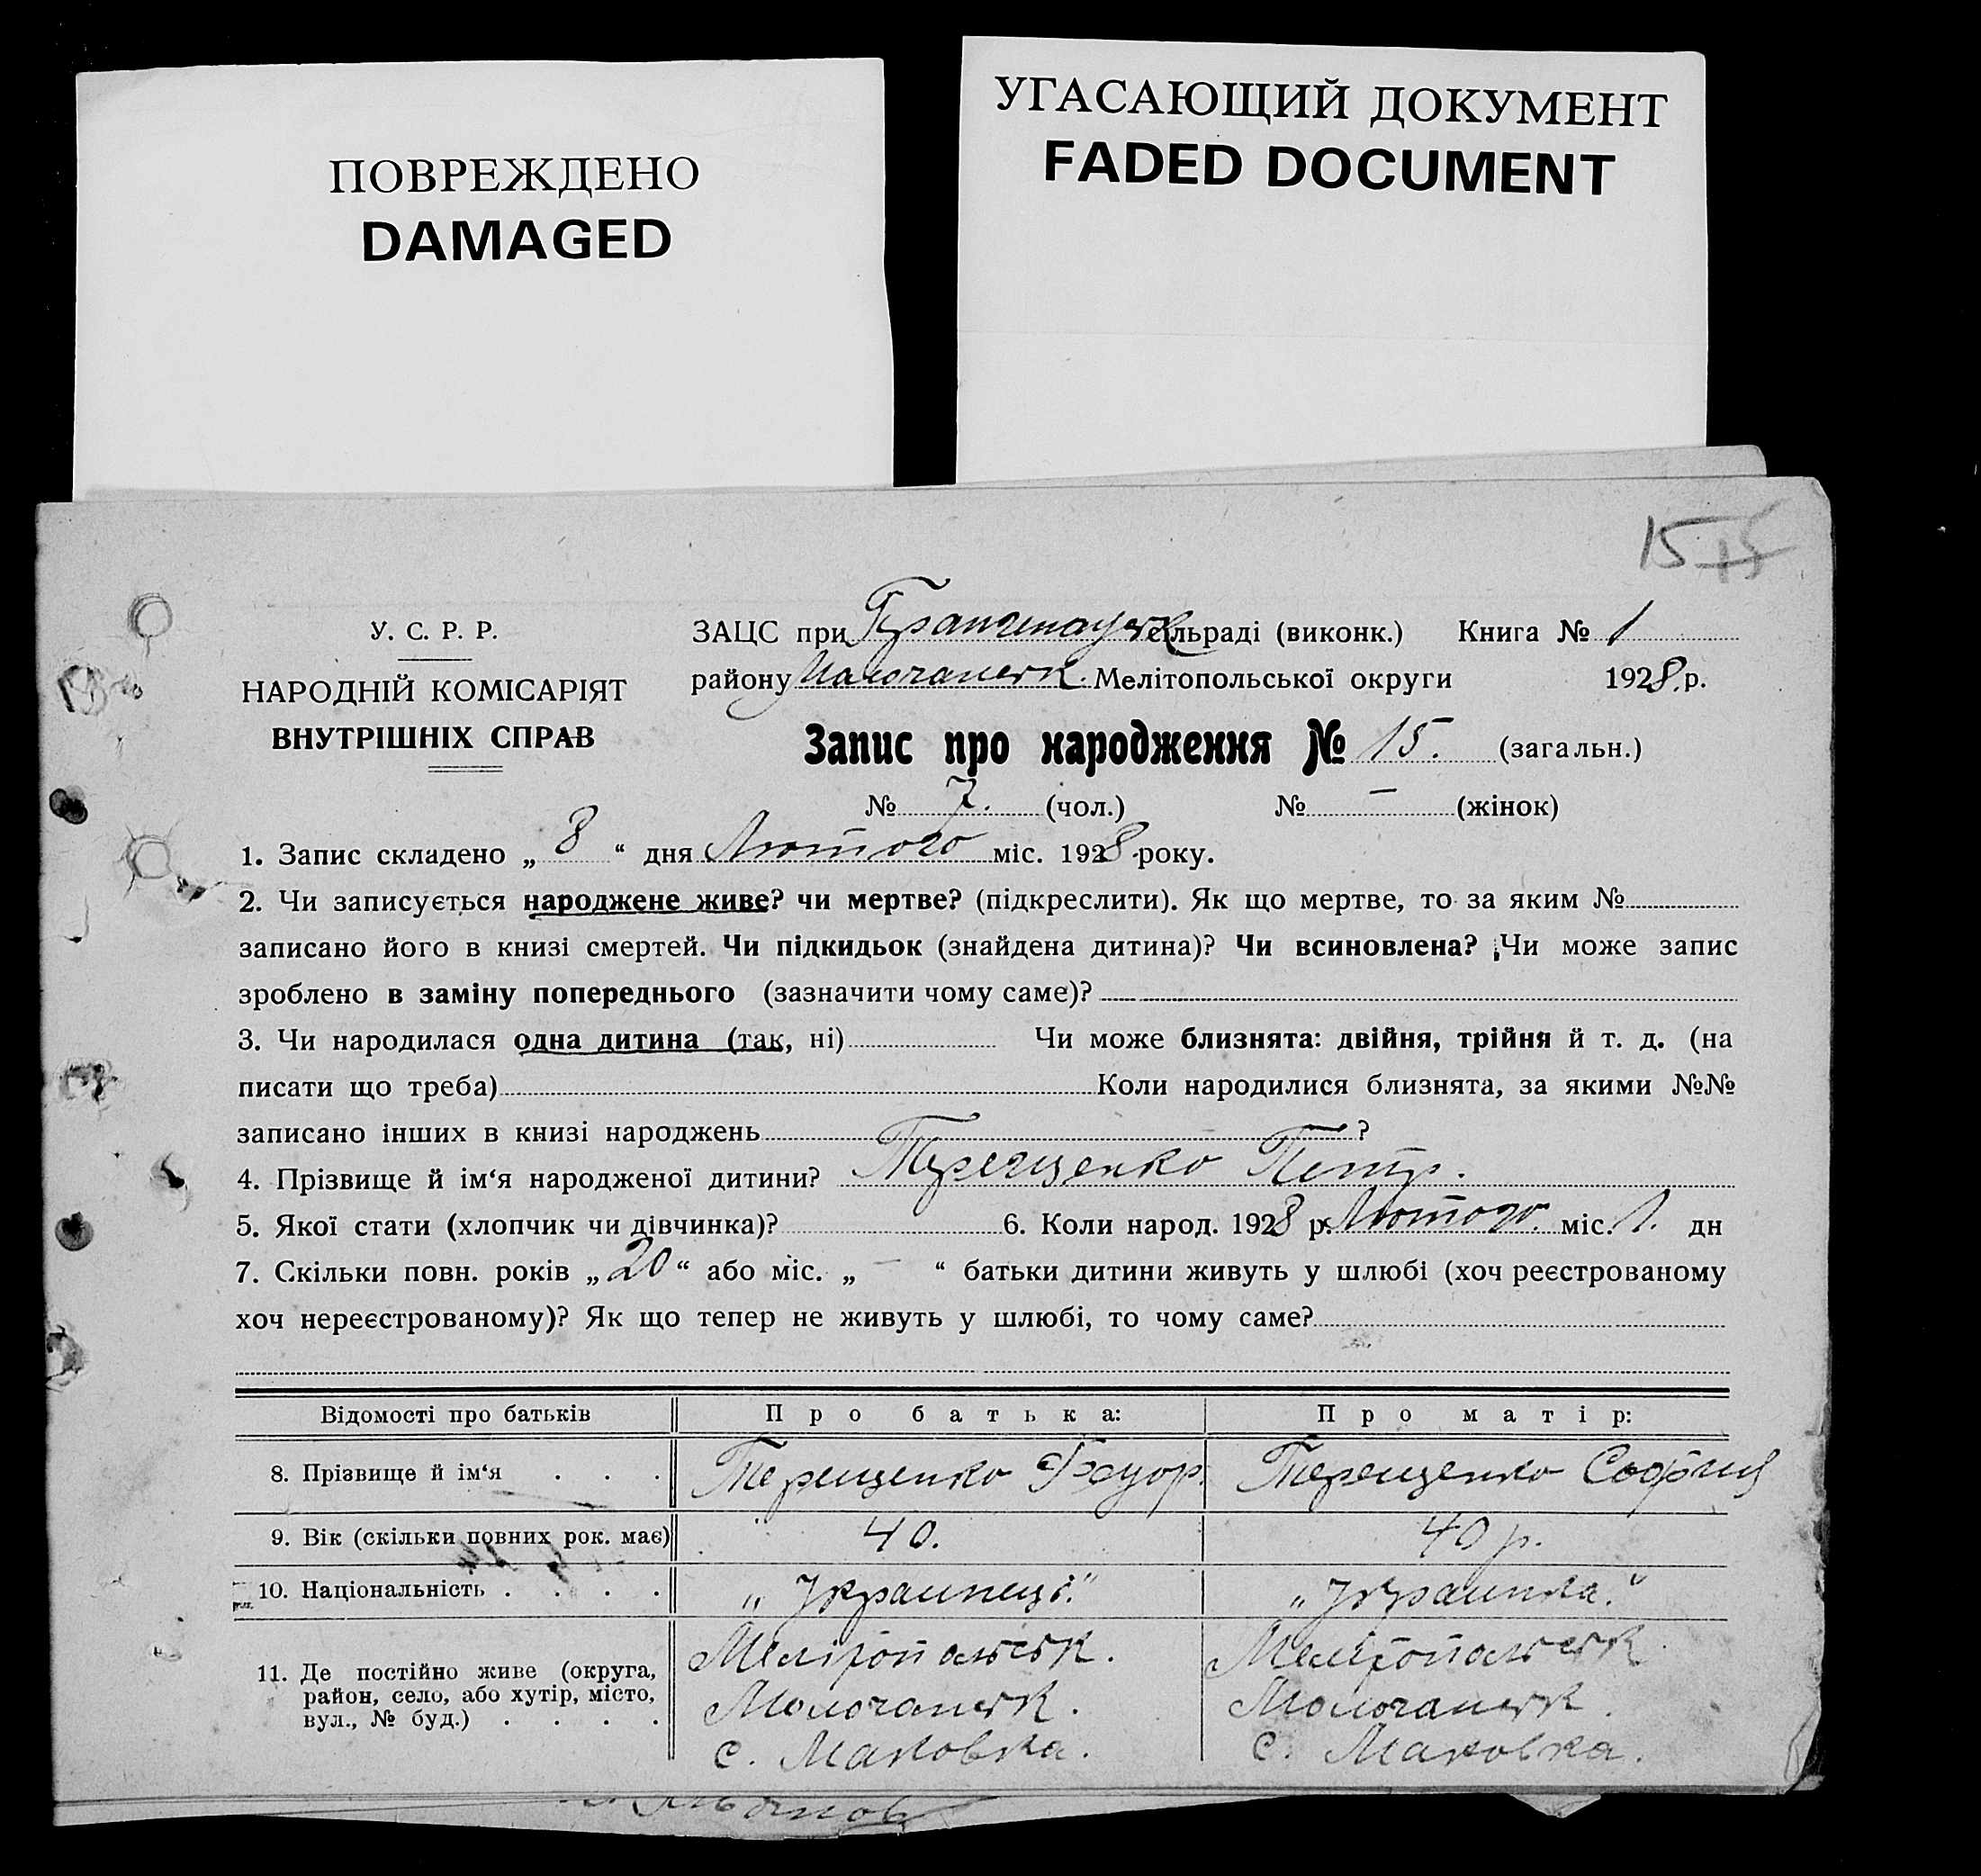 ПОВРЕЖДЕНО
DAMAGED
УГАСАЮЩИЙ ДОКУМЕНТ
FADED DOCUMENT
15 15
У. С. Р. Р.
НАРОДНІЙ КОМІСАРІЯТ
ВНУТРІШНІХ СПРАВ
ЗАЦС при сільраді (виконк.) Книга № 1
району Молочанськ. Мелітопольської округи 1928 р.
Запис про народження № 15. (загальн.)
№ 7. (чол.) № — (жінок)
1. Запис складено „ 8 “ дня Лютого міс. 1928 року.
2. Чи записується народжене живе? чи мертве? (підкреслити). Як що мертве, то за яким №
записано його в книзі смертей. Чи підкидьок (знайдена дитина)? Чи всиновлена? Чи може запис
зроблено в заміну попереднього (зазначити чому саме)?
3. Чи народилася одна дитина (так, ні) Чи може близнята: двійня, трійня й т. д. (на
писати що треба) Коли народилися близнята, за якими №№
записано інших в книзі народжень ?
4. Прізвище й ім‘я народженої дитини? Терещенко Петр.
5. Якої стати (хлопчик чи дівчинка)? 6. Коли народ. 1928 р. Лютого. міс. 1. дн
7. Скільки повн. років „ 20 “ або міс. „ — “ батьки дитини живуть у шлюбі (хоч реєстрованому
хоч нереєстрованому)? Як що тепер не живуть у шлюбі, то чому саме?
Відомості про батьків Про батька: Про матір:
8. Прізвище й ім‘я . . . Терещенко Терещенко София
9. Вік (скільки повних рок. має) 40. 40 р.
10. Національність . . . . „Украинець.“ „Украинка.“
11. Де постійно живе (округа,
район, село, або хутір, місто,
вул., № буд.) . . . .
Мелітопольськ. Мелітопольськ
Молочанськ. Молочанськ.
с. Маковка. с. Маковка.